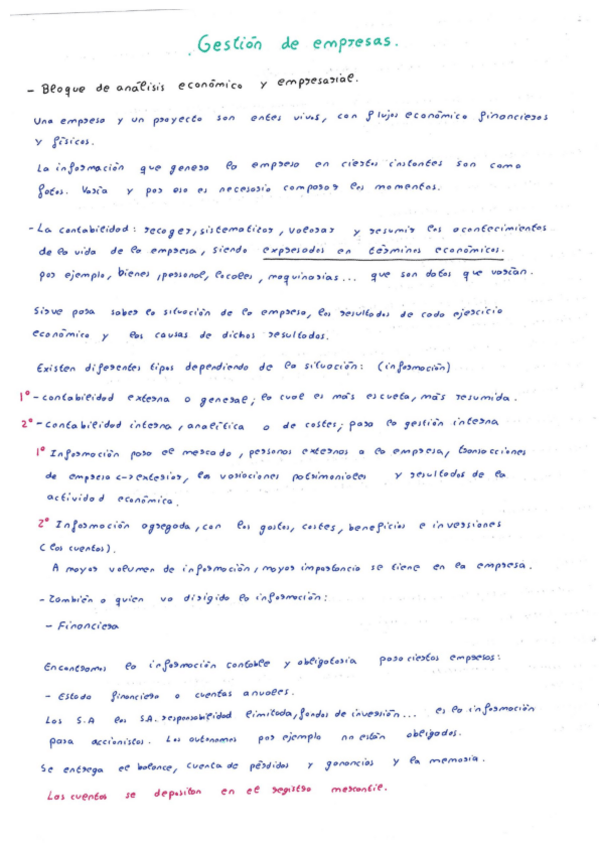 Gestión de empresas.
- Bloque de análisis económico y empresarial.
Una empresa y un proyecto son entes vivos, con flujos económico financieros
y físicos.
La información que genera la empresa en ciertos instantes son como
fotos. Varía y por eso es necesario comparar los momentos.
- La contabilidad: recoger, sistematicos, valorar y resumir los acontecimientos
de la vida de la empresa, siendo expresados en términos económicos.
por ejemplo, bienes, personal, locales, maquinarias... que son datos que varían.
Sirve para saber la situación de la empresa, los resultados de cada ejercicio
económico y las causas de dichos resultados.
Existen diferentes tipos dependiendo de la situación: (información)
1º - contabilidad externa o general; la cual es más escueta, más resumida.
2º - contabilidad interna, analítica o de costes; para la gestión interna
1º Información para el mercado, personas externas a la empresa, transacciones
de empresa <-> exterior, las variaciones patrimoniales y resultados de la
actividad económica.
2º Información agregada, con los gastos, costes, beneficios e inversiones
(los cuentas).
A mayor volumen de información, mayor importancia se tiene en la empresa.
- También a quien va dirigido la información:
- Financiera
Encontramos la información contable y obligatoria para ciertas empresas:
- Estado financiero o cuentas anuales.
Las S.A las S.A. responsabilidad limitada, fondos de inversión... es la información
para accionistas. Los autonomos por ejemplo no están obligados.
Se entrega el balance, cuenta de pérdidas y ganancias y la memoria.
Las cuentas se depositan en el registro mercantil.